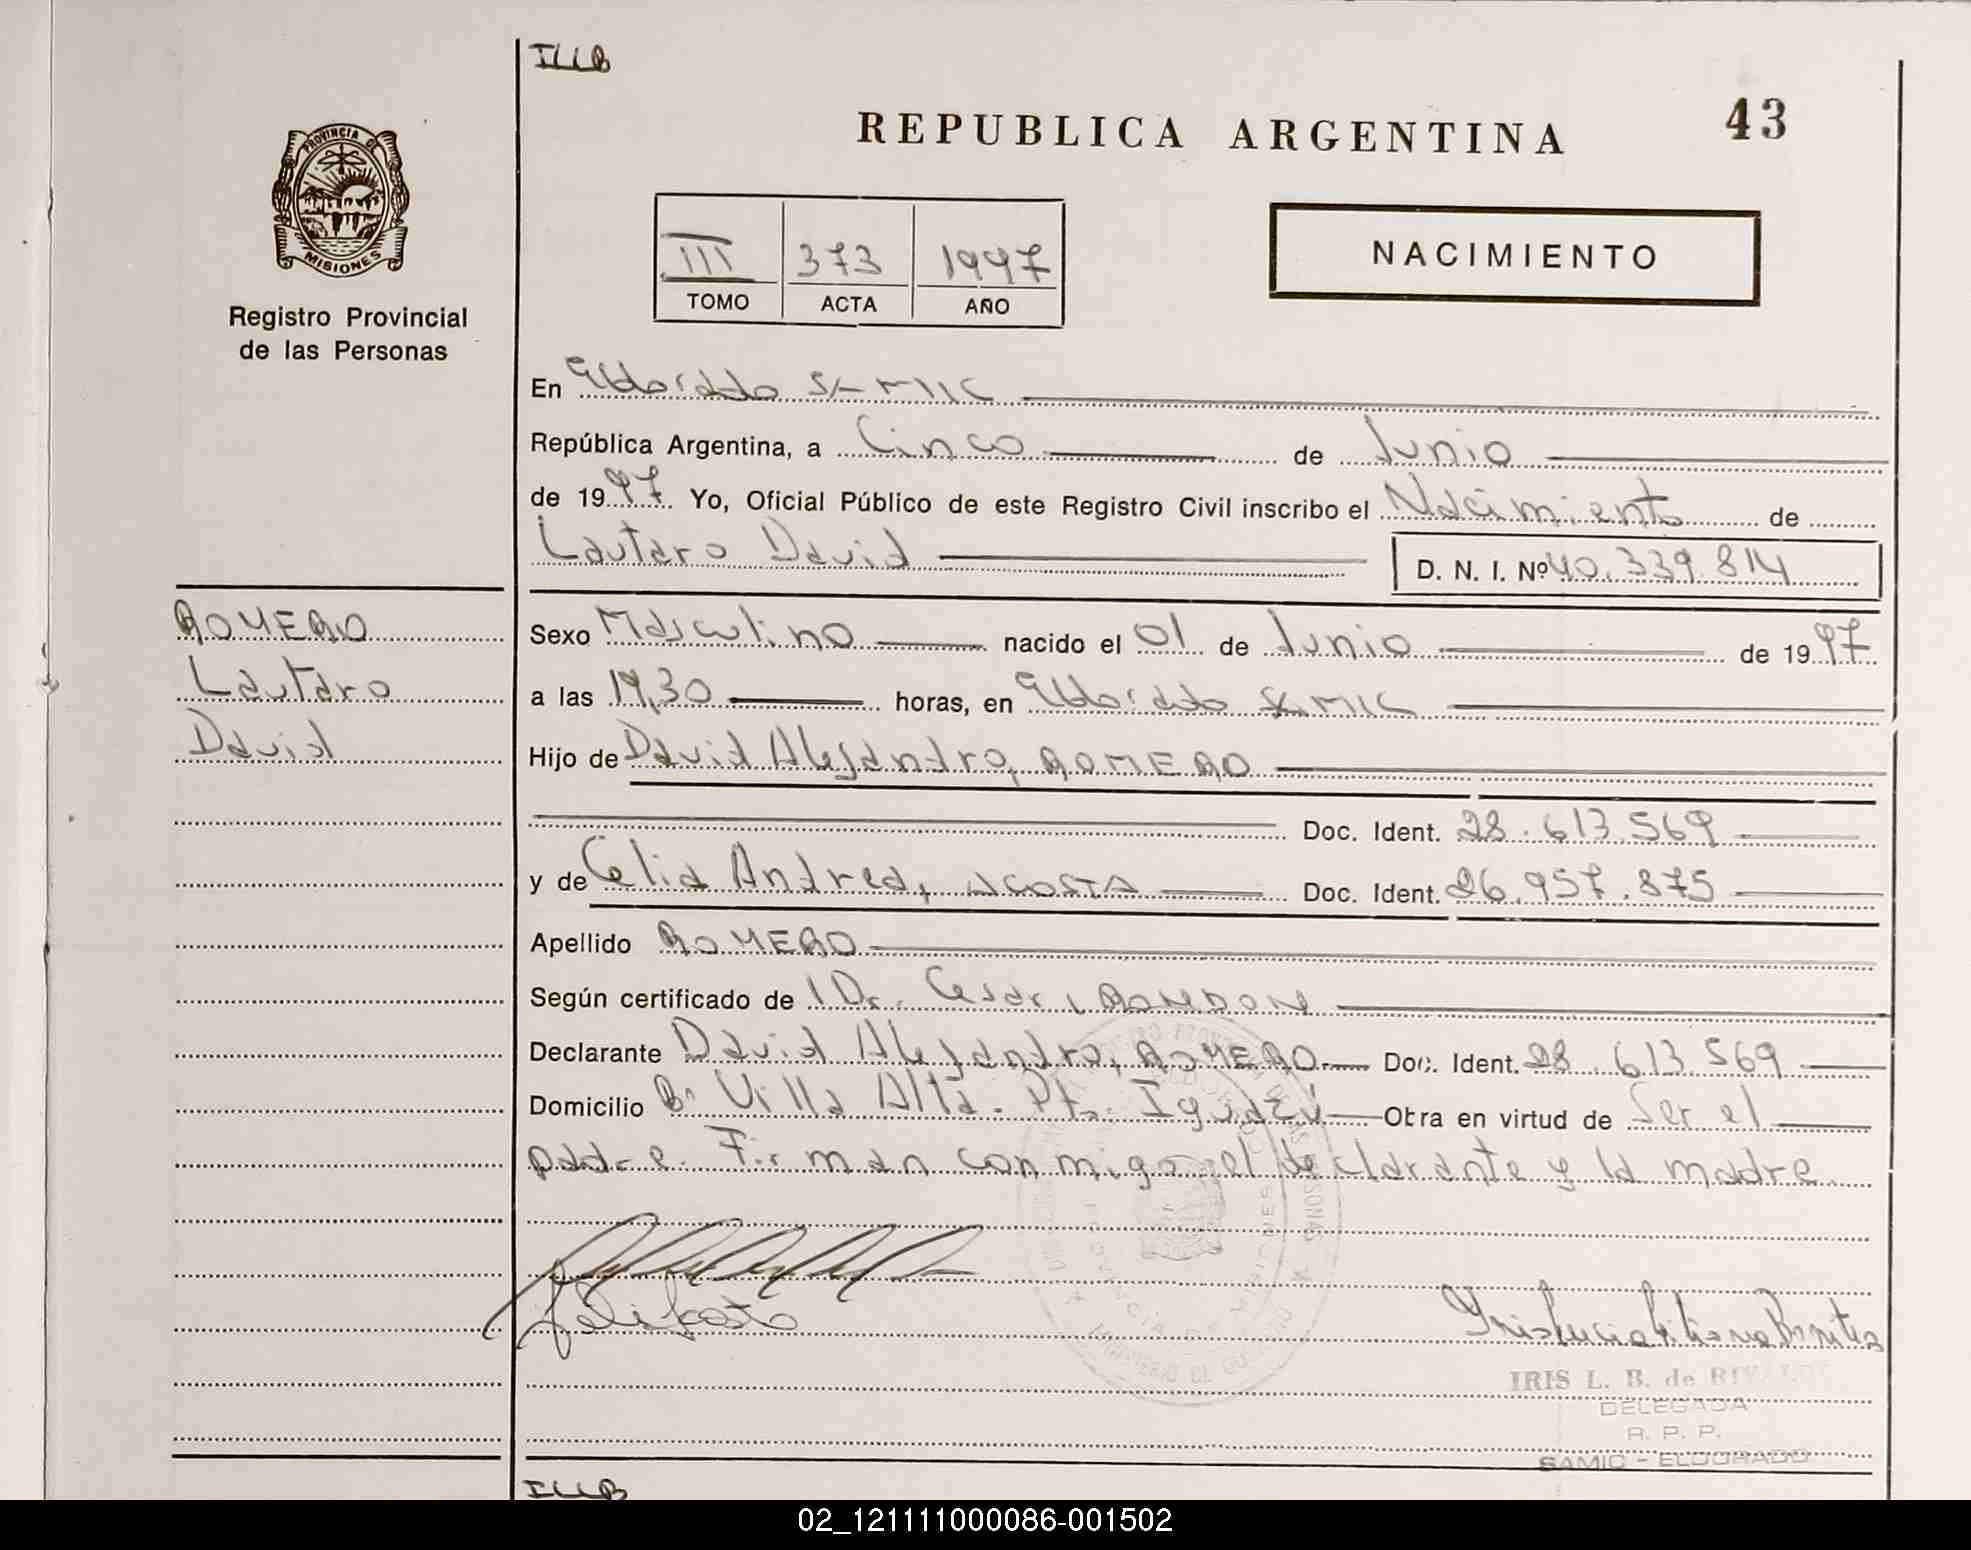 ILLB
REPUBLICA ARGENTINA
43
PROVINCIA DE
MISIONES
Registro Provincial
de las Personas
III 373 1997
TOMO ACTA AÑO
NACIMIENTO
En Eldorado SAMIC
República Argentina, a Cinco de Junio
de 1997 Yo, Oficial Público de este Registro Civil inscribo el Nacimiento de
Lautaro David
D. N. I. Nº 40.339.814
ROMERO
Lautaro
David
Sexo Masculino nacido el 01 de Junio de 1997
a las 19,30 horas, en Eldorado SAMIC
Hijo de David Alejandro, ROMERO
Doc. Ident. 28.613.569
y de Celia Andrea, ACOSTA Doc. Ident. 26.957.875
Apellido ROMERO
Según certificado de Dr. Cesar, RONDON
Declarante David Alejandro, ROMERO Doc. Ident. 28.613.569
Domicilio Bº Villa Alta. Pto. Iguazú Obra en virtud de Ser el
padre. Firman conmigo el declarante y la madre.
IRIS L. B. de
DELEGADA
R. P. P.
SAMIC - ELDORADO
ILLB
02_121111000086-001502